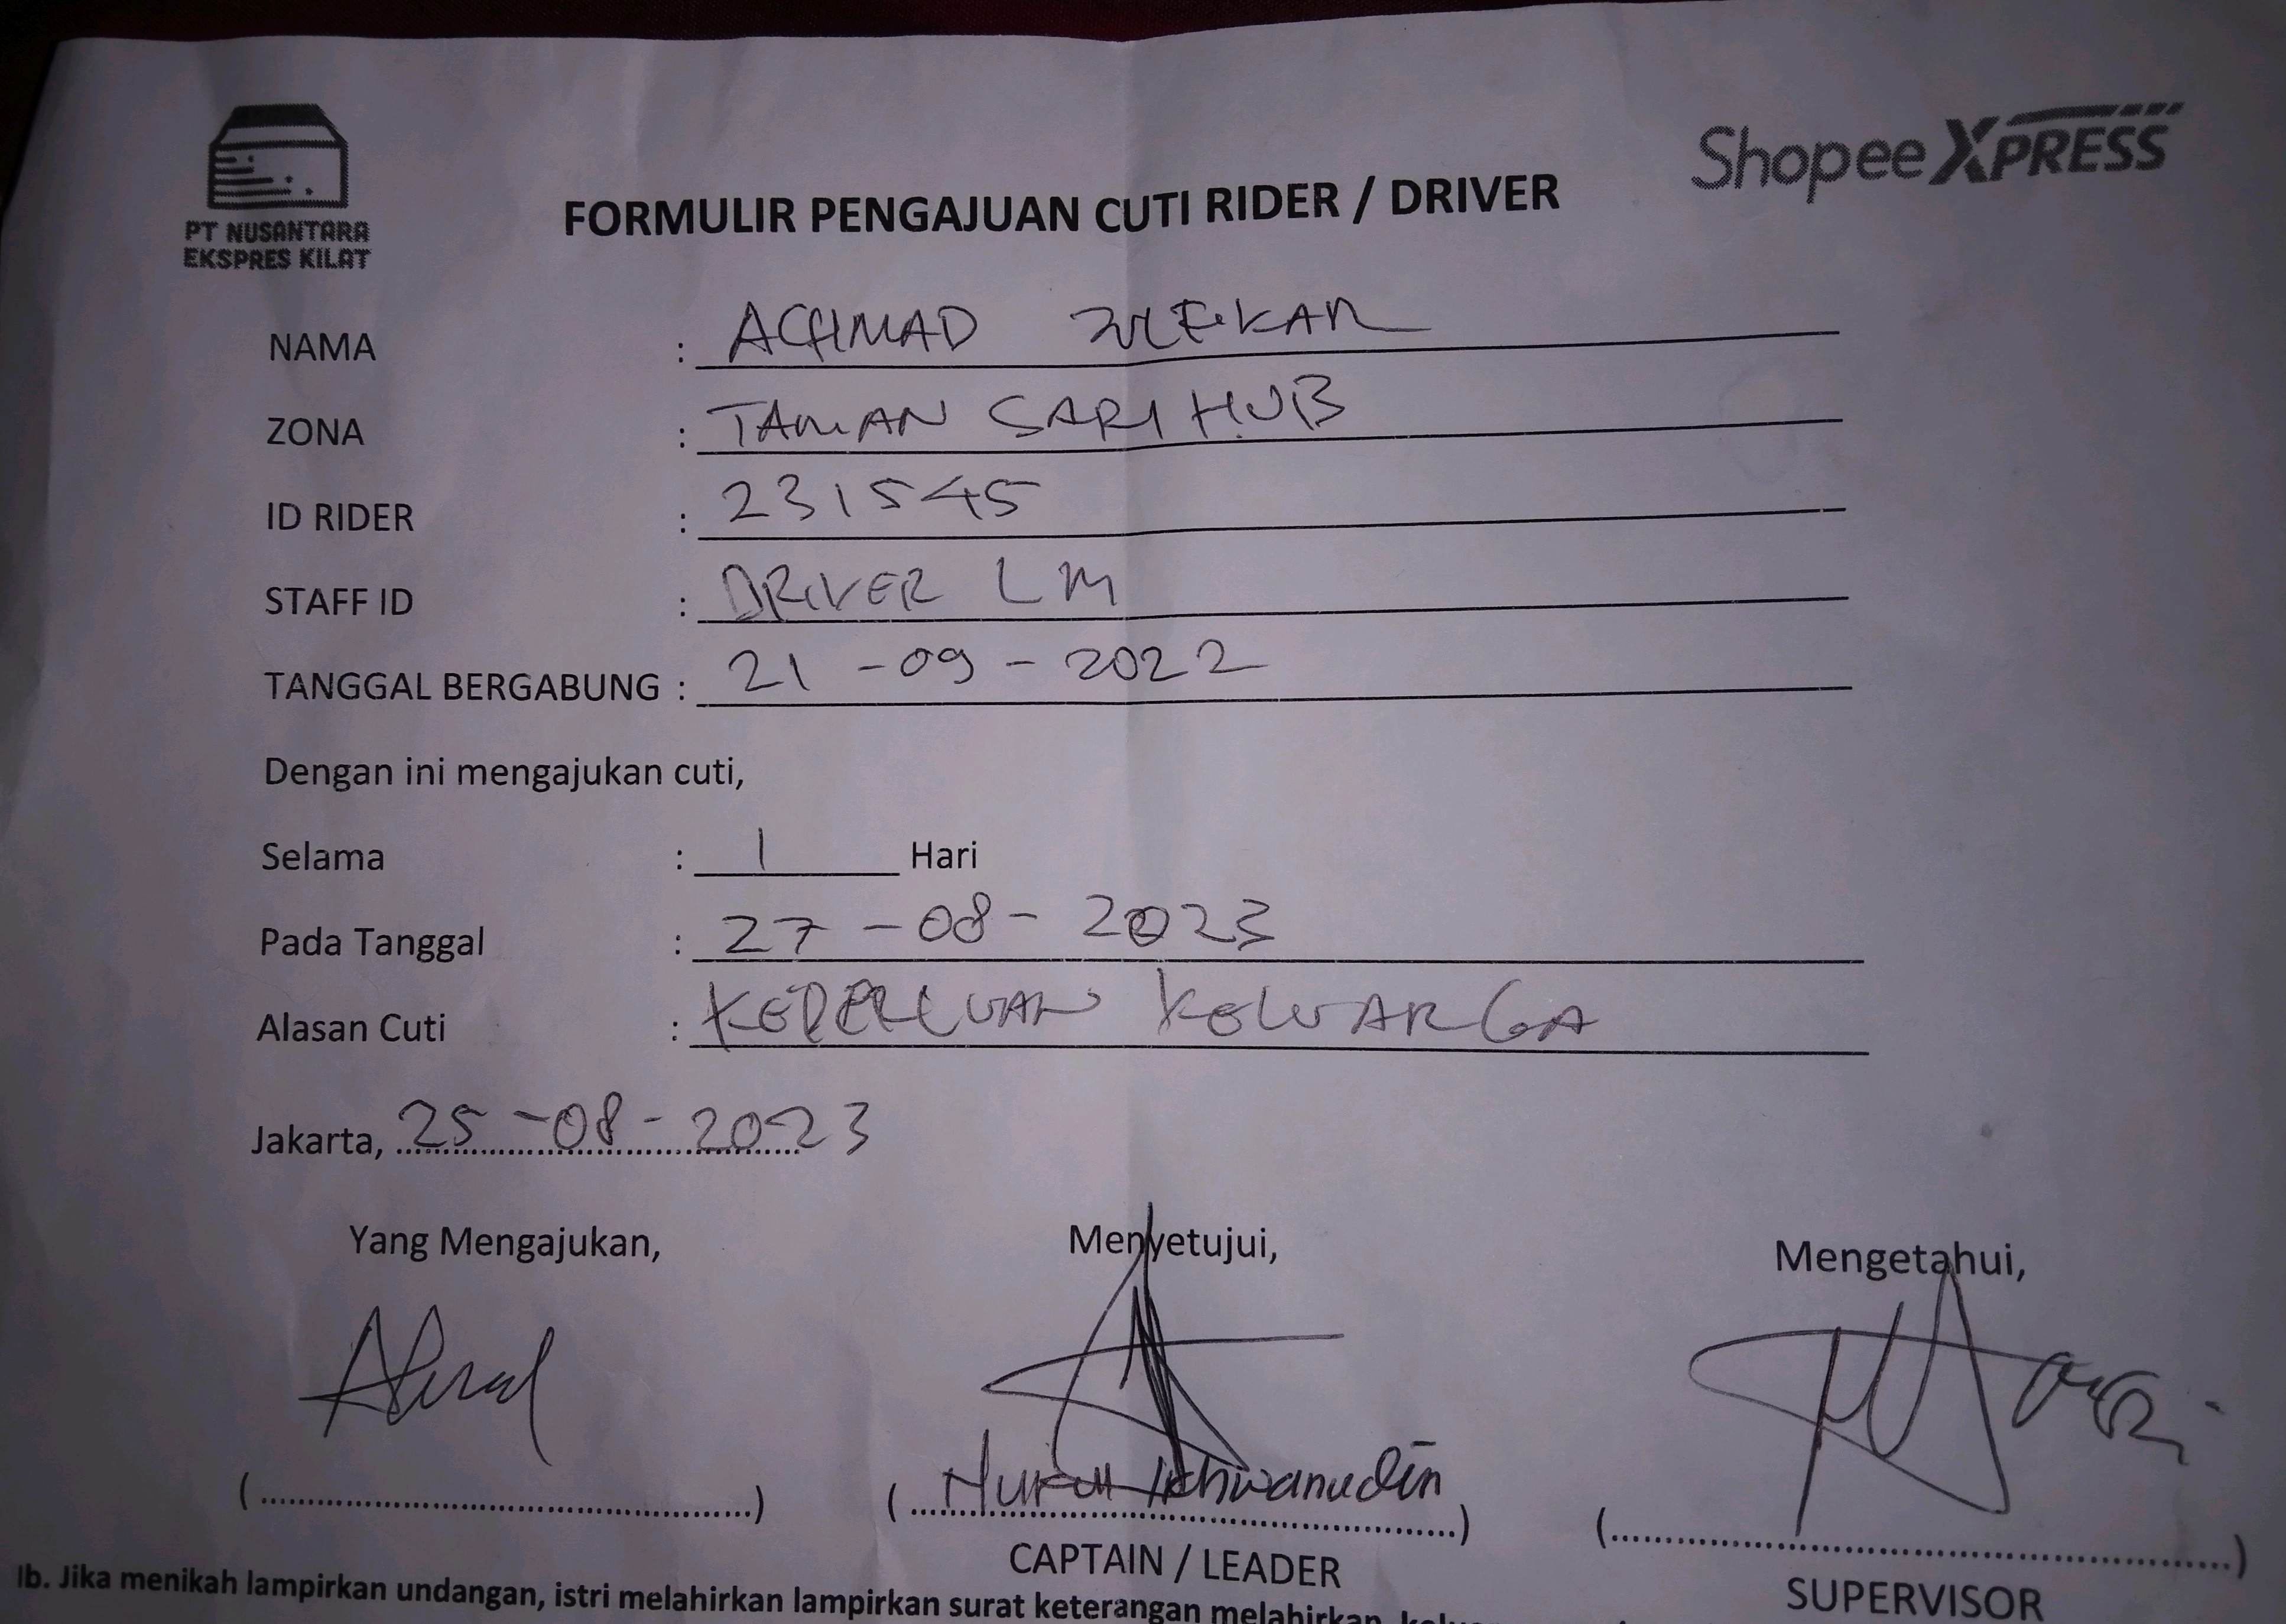 PT NUSANTARA
EKSPRES KILAT
Shopee XPRESS
FORMULIR PENGAJUAN CUTI RIDER / DRIVER
NAMA : ACHMAD ZULFIKAR
ZONA : TAMAN SARI HUB
ID RIDER : 231545
STAFF ID : DRIVER LM
TANGGAL BERGABUNG : 21 - 09 - 2022
Dengan ini mengajukan cuti,
Selama : 1 Hari
Pada Tanggal : 27 - 08 - 2023
Alasan Cuti : KEPERLUAN KELUARGA
Jakarta, 25 - 08 - 2023
Yang Mengajukan, Menyetujui, Mengetahui,
(....................) ( Nurul Ikhwanudin ) (....................)
CAPTAIN / LEADER SUPERVISOR
Ib. Jika menikah lampirkan undangan, istri melahirkan lampirkan surat keterangan melahirkan,